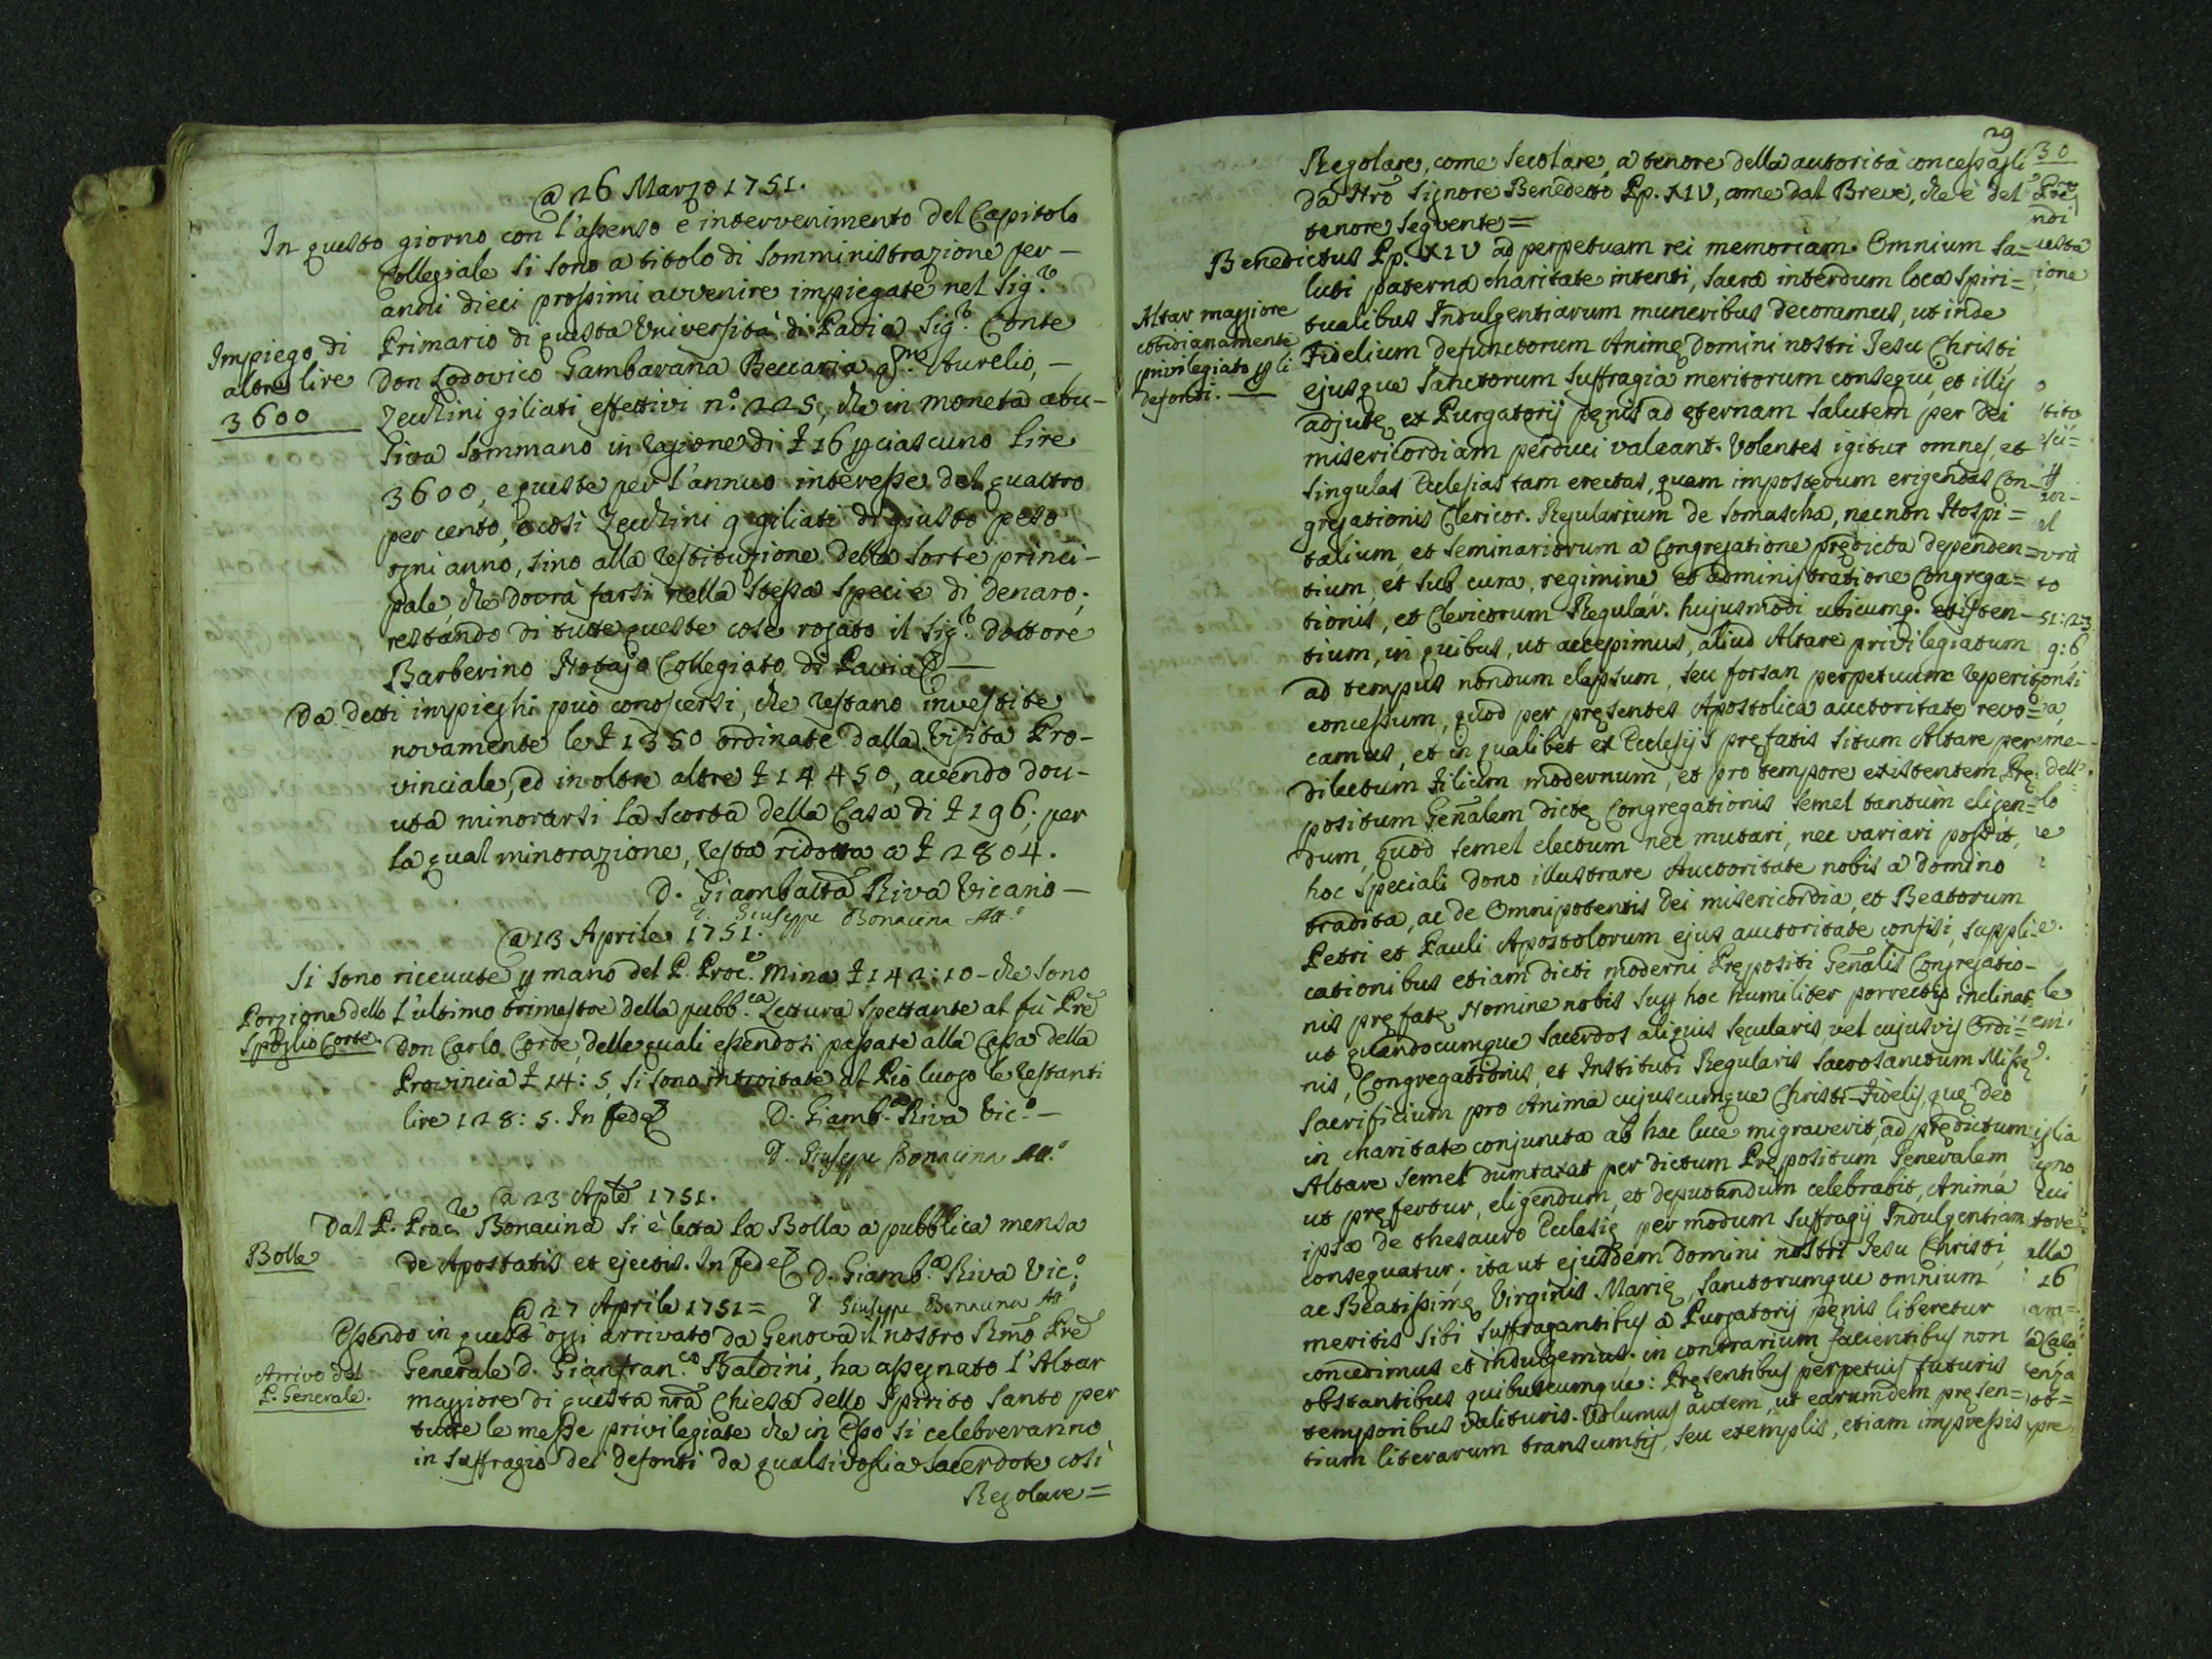 @ 26 Marzo 1751.
In questo giorno con l'assenso e intervenimento del Capitolo
Collegiale si sono a titolo di somministrazione per
anni dieci prossimi avvenire impiegate nel Sig.re
Impiego di
altre lire
3600
Primario di questa Università di Pavia Sig.r Conte
Don Lodovico Gambarana Beccaria qm. Aurelio, —
Zecchini giliati effettivi n.° 225, che in moneta abu-
siva sommano in ragione di £ 16 p ciascuno lire
3600, e queste per l'annuo interesse del quattro
per cento, e così Zecchini 9 giliati di giusto peso
ogni anno, sino alla restituzione della sorte princi-
pale, che dovrà farsi nella stessa specie di denaro;
restando di tutte queste cose rogato il Sig.r Dottore
Barberino Notajo Collegiato di Pavia
Da detti impieghi può conoscersi, che restano investite
novamente le £ 1350 ordinate dalla Visita Pro-
vinciale, ed in oltre altre £ 14450, avendo dov-
uta minorarsi la scorta della Casa di £ 196; per
la qual minorazione, resta ridotta a £ 2804.
D. Giambatta Riva Vicario —
D. Giuseppe Bonacina Att.°
@ 13 Aprile 1751.
Si sono ricevute p mano del P. Proc.re Mina £ 142:10 - che sono
Porzione dello
Spoglio Corte.
l'ultimo trimestre della pubb.ca Lettura spettante al fù Pre
Don Carlo Corte, delle quali essendosi passate alla Cassa della
Provincia £ 14:5, si sono introitate al Pio luogo le restanti
lire 128:5. In fede
D. Giamb.a Riva Vic.° —
D. Giuseppe Bonacina Att.°
@ 23 Aple 1751.
Dal P. Proc.re Bonacina si è letta la Bolla a pubblica mensa
Bolla
de Apostatis et ejectis. In fede
D. Giamb.a Riva Vic.°
D. Giuseppe Bonacina Att.°
@ 27 Aprile 1751 =
Essendo in quest'oggi arrivato da Genova il nostro Rmo Pre
Arrivo del
P. Generale.
Generale D. Gianfran.co Baldini, ha assegnato l'Altar
maggiore di questa nra Chiesa dello Spirito Santo per
tutte le messe privilegiate che in esso si celebreranno
in suffragio dei defonti da qualsivoglia Sacerdote così
Regolare =
29
30
Regolare, come Secolare, a tenore della autorità concessagli
da Nro Signore Benedetto Pp. XIV, come dal Breve, che è del
tenore seguente =
Benedictus Pp. XIV ad perpetuam rei memoriam. Omnium sa=
luti paterna charitate intenti, sacra interdum loca spiri=
Altar maggiore
cotidianamente
privilegiato p li
defonti. —
tualibus Indulgentiarum muneribus decoramus, ut inde
Fidelium defunctorum Animę Domini nostri Jesu Christi,
ejusque Sanctorum suffragia meritorum consequi, et illis
adjutę ex Purgatorij pęnis ad eternam salutem per Dei
misericordiam perduci valeant. Volentes igitur omnes, et
singulas Ecclesias tam erectas, quam imposterum erigendas Con-
gregationis Clericor. Regularium de Somascha, necnon Hospi=
talium, et Seminariorum a Congregatione prędicta dependen=
tium, et sub cura, regimine, et administratione Congrega=
tionis, et Clericorum Regular. hujusmodi ubicumq. existen-
tium, in quibus, ut accepimus, aliud Altare privilegiatum
ad tempus nondum elapsum, seu forsan perpetuum reperitur
concessum, quod per pręsentes Apostolica auctoritate revo=
camus, et in qualibet ex Ecclesijs pręfatis situm Altare per
dilectum filium modernum, et pro tempore existentem Prę-
positum Gen̄alem dictę Congregationis semel tantum eligen=
dum, quod semel electum nec mutari, nec variari possit,
hoc speciali dono illustrare Auctoritate nobis a Domino
tradita, ac de Omnipotentis Dei misericordia, et Beatorum
Petri et Pauli Apostolorum ejus auctoritate confisi, suppli-
cationibus etiam dicti moderni Prępositi Gen̄alis Congregatio-
nis pręfatę Nomine nobis sup hoc humiliter porrectis inclinati
ut quandocumque Sacerdos aliquis sęcularis, vel cujusvis Ordi=
nis, Congregationis, et Instituti Regularis Sacrosanctum Missę
Sacrificium pro Anima cujuscumque Christi-Fidelis, quę Deo
in charitate conjuncta ab hac luce migraverit, ad prędictum
Altare semel dumtaxat per dictum Prępositum Generalem,
ut pręfertur, eligendum, et deputandum celebrabit, Anima
ipsa de thesauro Ecclesię per modum suffragij Indulgentiam
consequatur; ita ut ejusdem Domini nostri Jesu Christi,
ac Beatissimę Virginis Marię, Sanctorumque omnium
meritis sibi suffragantibus a Purgatorij pęnis liberetur
concedimus et indulgemus. in contrarium facientibus non
obstantibus quibuscumque: Pręsentibus perpetuis futuris
temporibus valituris. Volumus autem, ut earumdem pręsen=
tium literarum transumtis, seu exemplis, etiam impressis